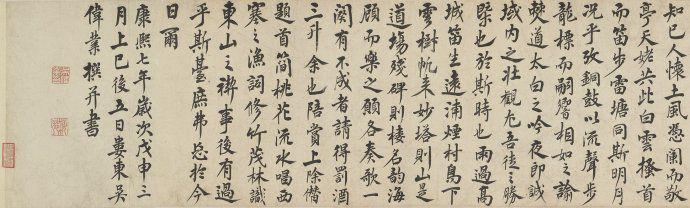 知己人懷土風憑闌而敬
亭天姥共此白雲搔首
而笛步雷塘同斯明月
況乎攷銅鼓以流聲步
龍標而嗣響相如之諭
僰道太白之吟夜郎誠
域内之壯觀尤吾徒之勝
槩也於斯時也雨過高
城笛生遠浦煙村鳥下
雲樹帆来妙塔則山是
道塲殘碑則樓名韵海
顧而樂之願各奏歌一
闋有不成者請得罰酒
三升余也陪賞上除僭
題首簡桃花流水唱西
塞之漁詞修竹茂林識
東山之禊事後有過
乎斯臺庶弗忘於今
日爾
康熙七年歲次戊申三
月上巳後五日婁東吳
偉業撰并書